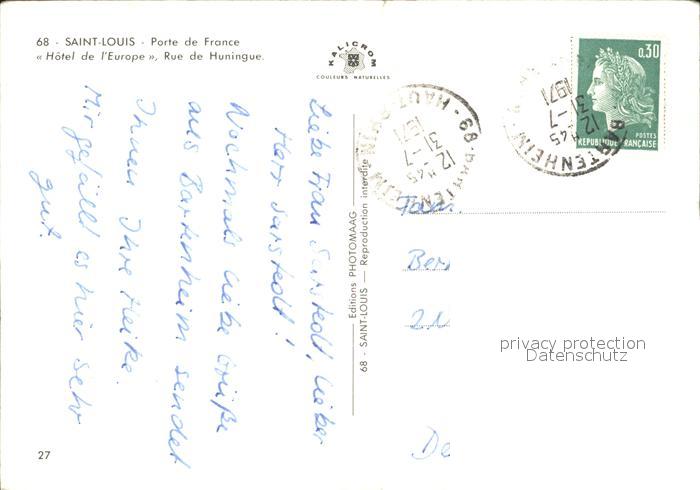 68 - SAINT-LOUIS - Porte de France
« Hôtel de l'Europe », Rue de Huningue.
KALICROM
COULEURS NATURELLES
Liebe Frau Sarstedt, lieber
Herr Sarstedt!
Nochmals liebe Grüße
aus Bartenheim sendet
Ihnen Ihre Heike.
Mir gefällt es hier sehr
gut!
27
Editions PHOTOMAAG
68 - SAINT-LOUIS — Reproduction interdite
68 - BARTENHEIM
HAUT-RHIN
12 H45
31 - 7
1971
BARTENHEIM
12 H45
31 - 7
1971
0,30
POSTES
REPUBLIQUE FRANÇAISE
Fam.
Ber
2
De
privacy protection
Datenschutz